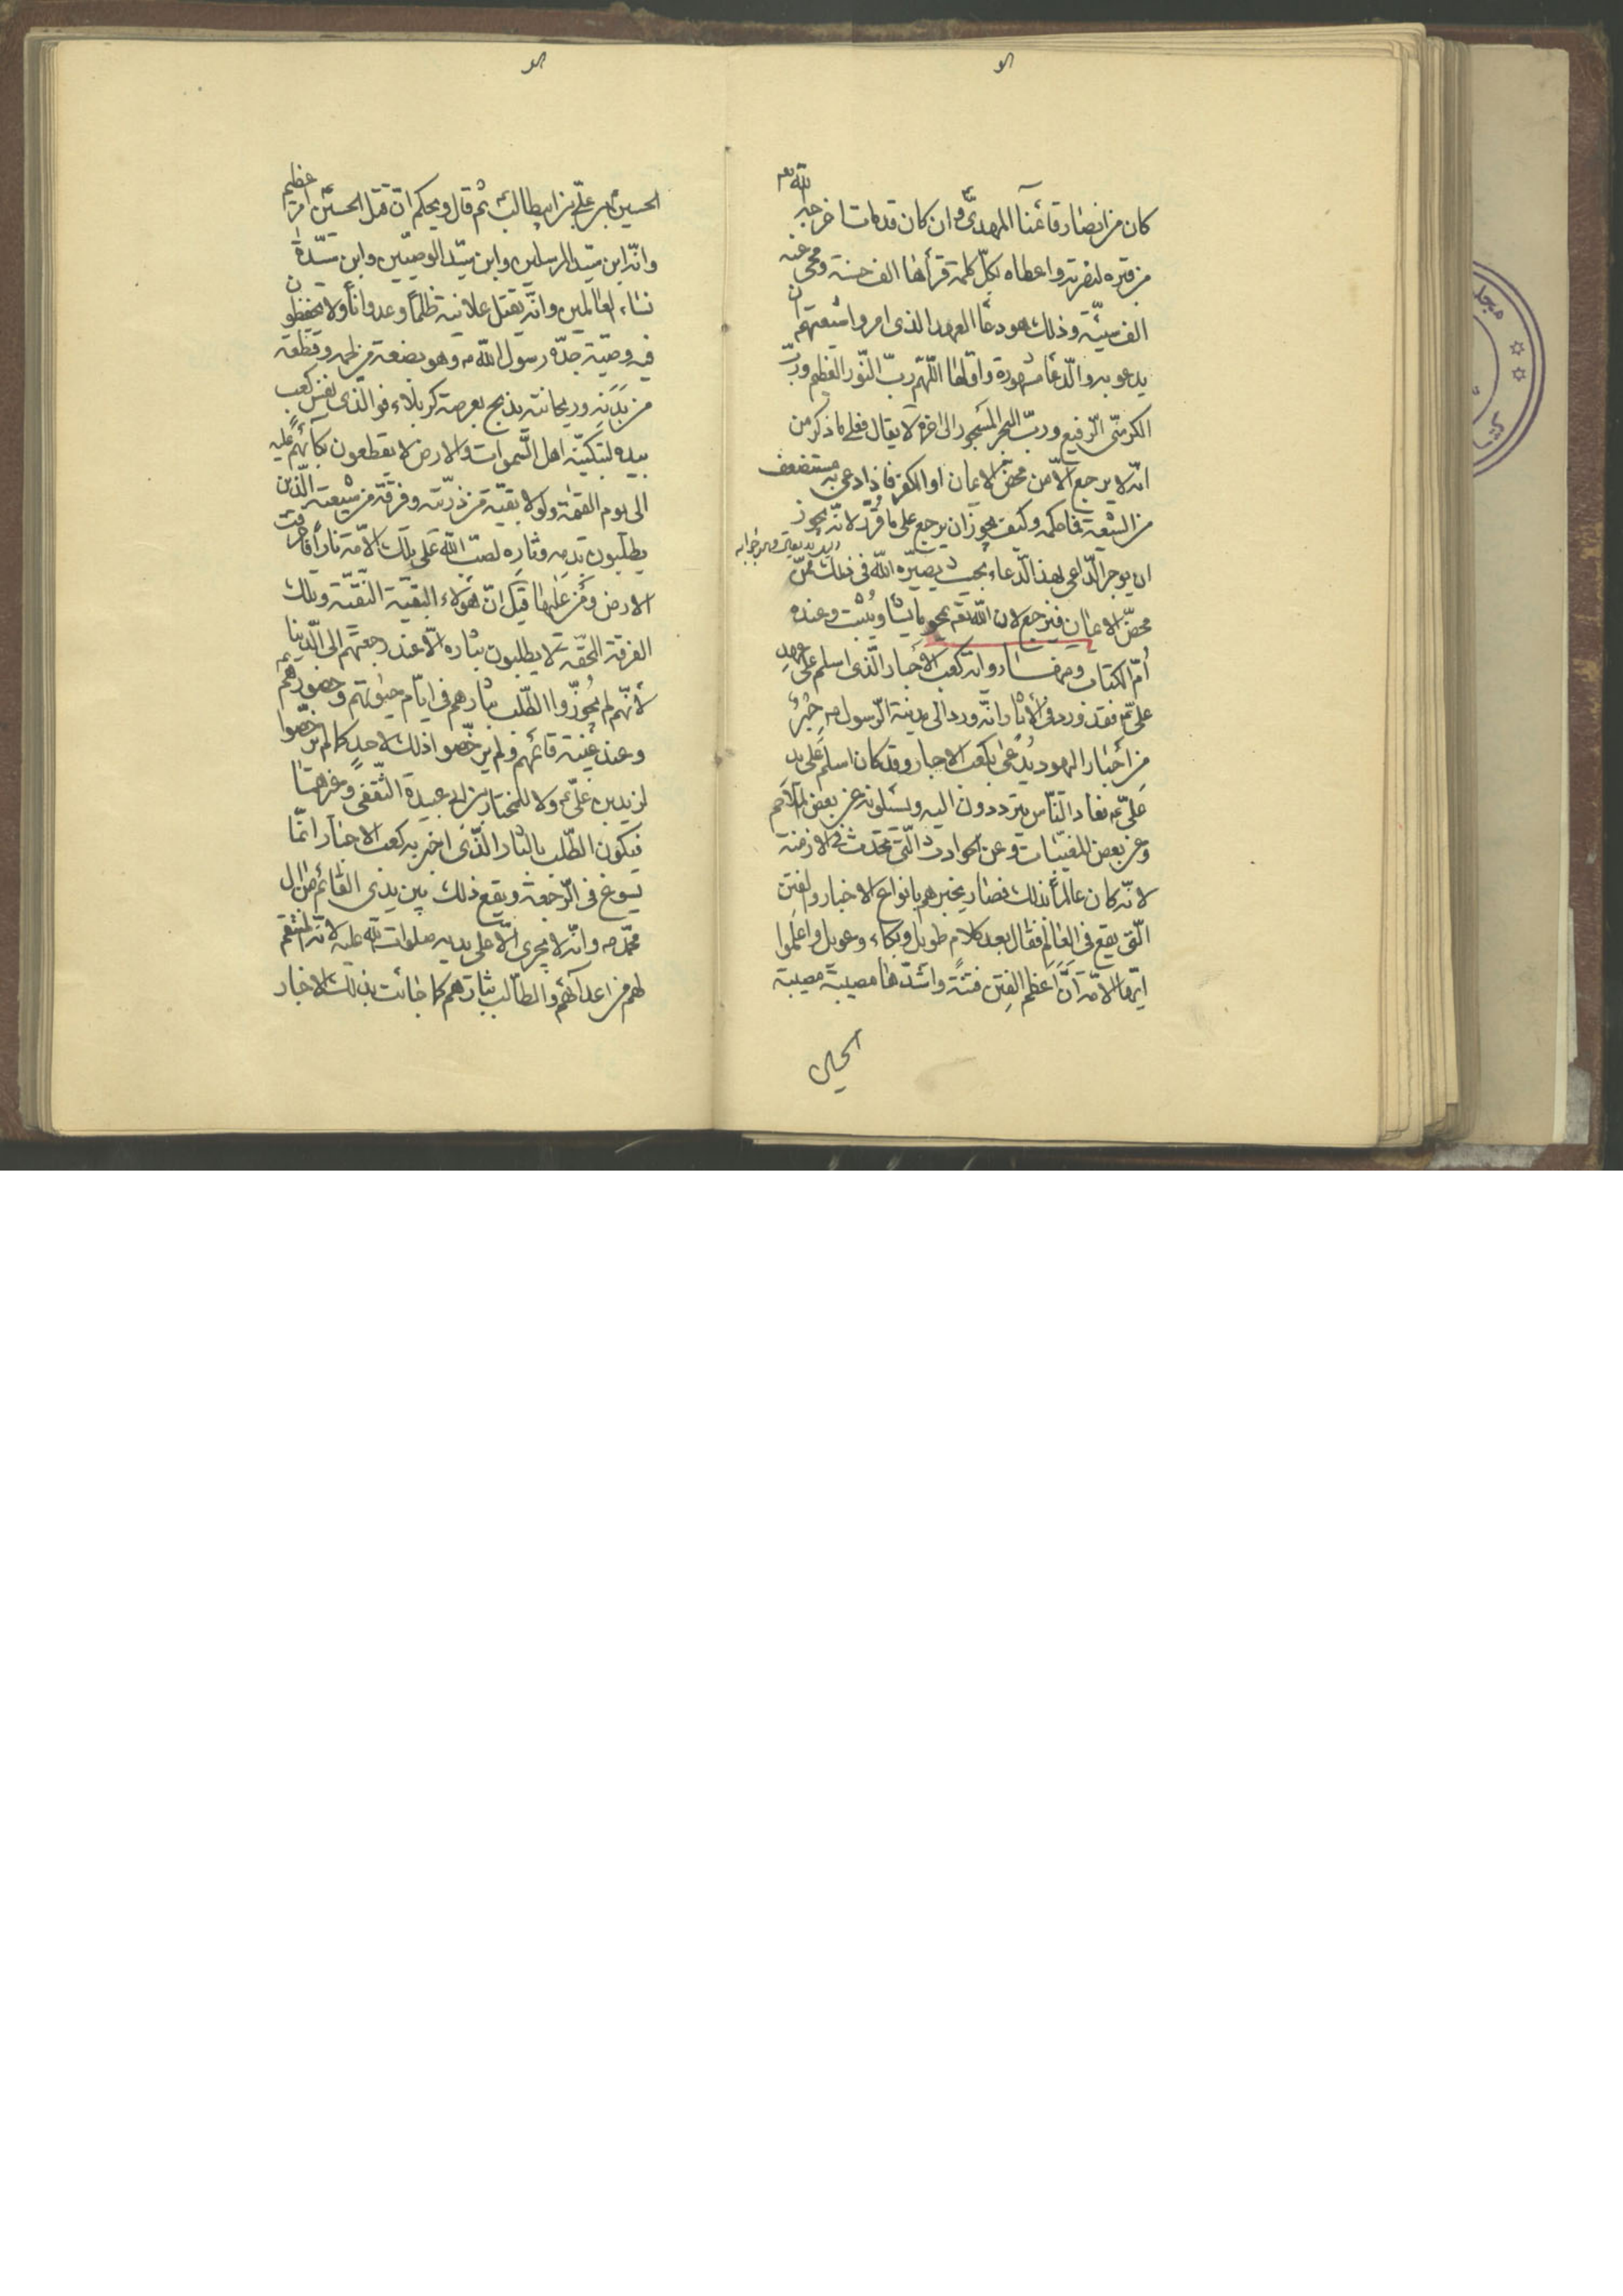 كان من انصار قائمنا المهدي ع و ان كان قد مات اخرجه الله تعه
من قبره لنصرته و اعطاه بكلّ كلمة قرأها الف حسنة و محى عنه
الف سيّئة و ذلك هو دعآ العهد الذي امروا شيعتهم ان
يدعو به و الدّعآ مشهورة و اوّلها اللّهم ربّ النّور العظيم و ربّ
الكرسّي الرّفيع و ربّ البحر المسجور الى اخره لا يقال فعلى ما ذكر من
انّه لا يرجع الّا من محض الايمان او الكفر فاذا دعى به مستضعف
من الشيعة فما حكمه و كيف يجوز ان يرجع على ما قُرّر لانّه يجوز
ان يوجر الدّاعى لهذا الدّعاء بحيث يصيّره الله فى ذلك ممّن
محضّ الايمان فيرجع لان الله تعه يمحو ما يشا و يثبت و عنده
أمّ الكتاب و منها ما رواته كعب الاحبار الّذى اسلم على عهد
على ع فقد ورد فى الأثار انّه ورد الى مدينة الرّسول ص حبرٌ
من أحبار اليهود يُدعى بكعب الاحبار و قد كان اسلم على يد
علىّ ع فعاد النّاس يتردّدون اليه و يسئلونه عن بعض الملاحم
و عن بعض المغيّبات و عن الحوادث الّتى تحدث فى الازمنة
لانّه كان عالماً بذلك فصار يخبرهم بانواع الاخبار و الفتن
الّتى يقع فى العالم فقال بعد كلام طويل و بكاء و عويل و اعلموا
ايّها الامّة انّ اعظم الفتن فتنةً و اشدّها مصيبة مصيبة
الحسين
الحسين بن علىّ بن ابيطالب ع ثم قال ويحكم انّ قتل الحسين ع امر عظيم
و انّه ابن سيّد المرسلين و ابن سيّد الوصيّين و ابن سيّدة
نساء العالمين و انّه يقتل علانية ظلماً و عدواناً و لا يحفظون
فيه وصيّة جدّه رسول الله ص و هو بضعة من لحمه و قطعة
من بَدَنِه و ريحانته يذبح بعرصة كربلاء فوالّذى نفس كعب
بيده لتبكينّه اهل السّموات و الارض لا يقطعون بكائهم عليه
الى يوم القيمة و لولا بقيّة من ذرّيته و فرقة من شيعته الّذين
يطلبون بدمه و ثاره لصبّ الله على تلك الامّة ناراً فاحرقت
الارض و من عليها قيل انّ هؤلاء البقيّة النّقيّة و تلك
الفرقة المحقّة لا يطلبون بثاره الّا عند رجعتهم الى الدّنيا
لأنّهم لم يجوّزوا الطّلب بثارهم فى ايّام حيوتهم و حضورهم
و عند غيبة قائمهم و لم يرخّصوا ذلك لاحد كما لم يرخّصوا
لزيد بن علىّ ع و لا للمختار بن ابى عبيدة الثّقفى و غيرهما
فيكون الطّلب بالثار الّذى اخبر به كعب الاحبار انّما
يسوغ فى الرّجعة و يقع ذلك بين يدى القائم من ال
محمّد ص و انّه لا يجرى الّا على يديه صلوات الله عليه لانّه المنتقم
لهم من اعدآئهم و الطالب بثارهم كما جائت بذلك الاخبار